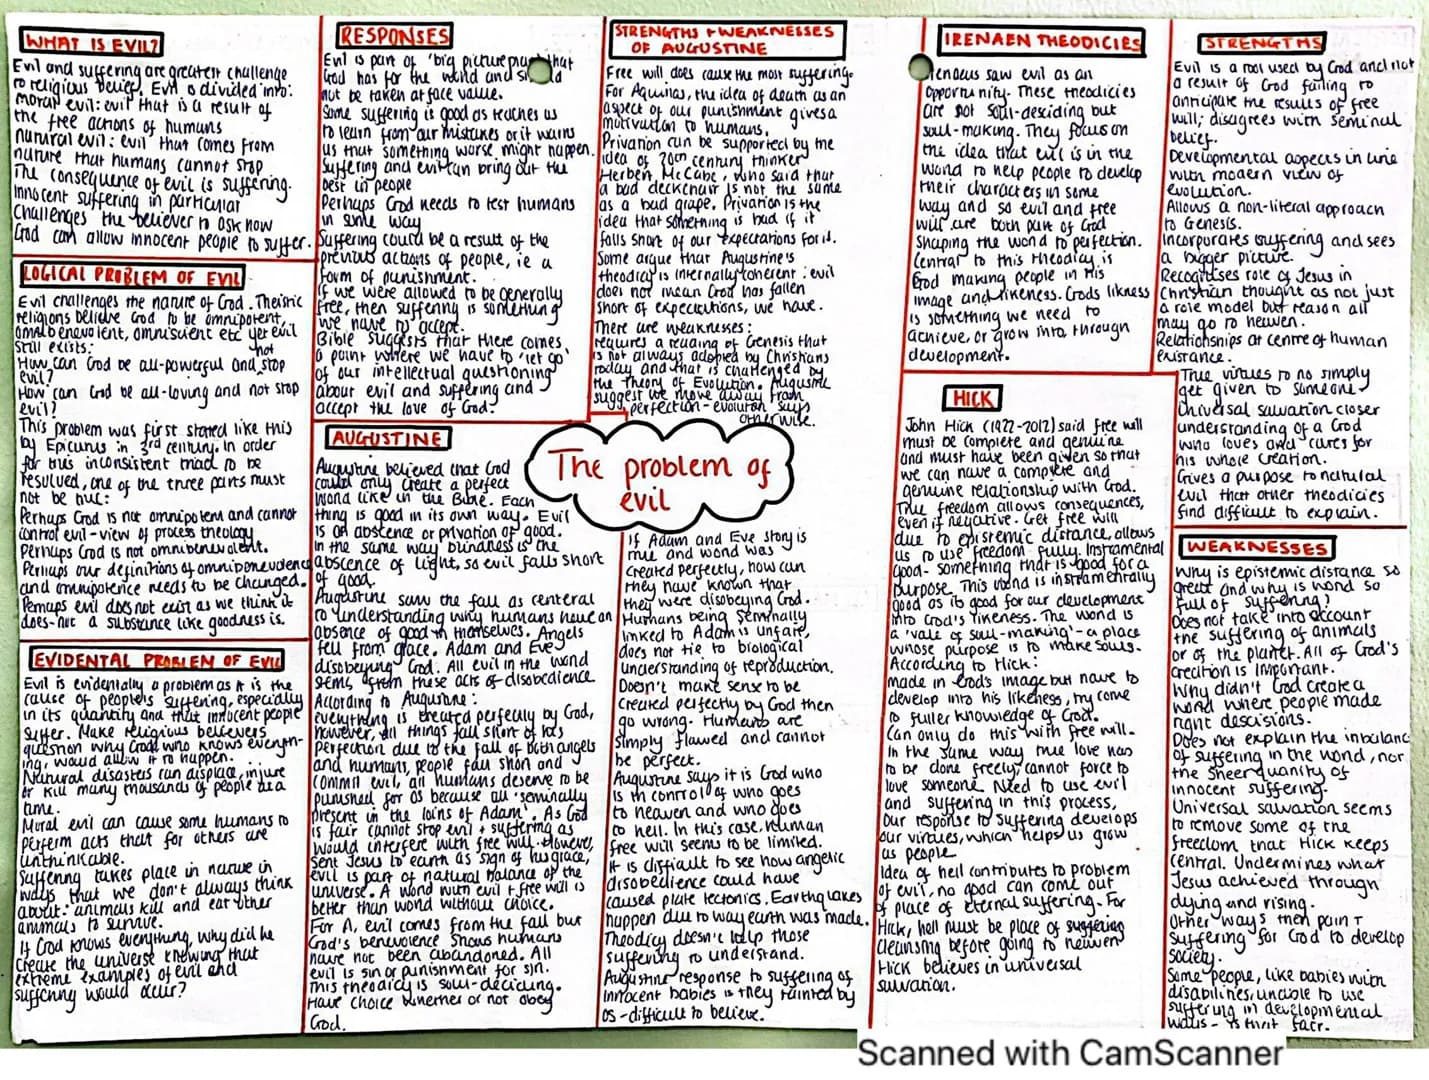 WHAT IS EVIL?
Evil and suffering are greatest challenge
to religious belief. Evil is divided into:
moral evil: evil that is a result of
the free actions of humans
natural evil: evil that comes from
nature that humans cannot stop
The consequence of evil is suffering.
Innocent suffering in particular
challenges the believer to ask how
God can allow innocent people to suffer.
LOGICAL PROBLEM OF EVIL
Evil challenges the nature of God. Theistic
religions believe God to be omnipotent,
omnibenevolent, omniscient etc yet evil
still exists:
How can God be all-powerful and not stop
evil?
How can God be all-loving and not stop
evil?
This problem was first stated like this
by Epicurus in 3rd century. In order
for this inconsistent triad to be
resolved, one of the three parts must
not be true:
Perhaps God is not omnipotent and cannot
control evil - view of process theology
Perhaps God is not omnibenevolent.
Perhaps our definitions of omnipotence
and omnipotence needs to be changed.
Perhaps evil does not exist as we think it
does - not a substance like goodness is.
EVIDENTAL PROBLEM OF EVIL
Evil is evidentially a problem as it is the
cause of people's suffering, especially
in its quantity and that innocent people
suffer. Make religious believers
question why God, who knows everyth-
ing, would allow it to happen.
Natural disasters can displace, injure
or kill many thousands of people at a
time.
Moral evil can cause some humans to
perform acts that for others are
unthinkable.
Suffering takes place in nature in
ways that we don't always think
about: animals kill and eat other
animals to survive.
If God knows everything, why did he
create the universe knowing that
extreme examples of evil and
suffering would occur?
RESPONSES
Evil is part of 'big picture' that
God has for the world and
not be taken at face value.
Some suffering is good as teaches us
to learn from our mistakes or it warns
us that something worse might happen.
Suffering and evil can bring out the
best in people
Perhaps God needs to test humans
in some way
Suffering could be a result of the
previous actions of people, ie a
form of punishment.
If we were allowed to be generally
free, then suffering is something
we have to accept.
Bible suggests that there comes
a point where we have to 'let go'
of our intellectual questioning
about evil and suffering and
accept the love of God.
AUGUSTINE
Augustine believed that God
could only create a perfect
world like in the Bible. Each
thing is good in its own way. Evil
is an abscence or privation of good.
In the same way blindness is the
abscence of light, so evil falls short
of good.
Augustine saw the fall as centeral
to understanding why humans have an
absence of good in themselves. Angels
fell from grace. Adam and Eve
disobeying God. All evil in the world
stems from these acts of disobedience
According to Augustine:
everything is created perfectly by God,
however, all things fall short of his
perfection due to the fall of both angels
and humans, people fall short and
commit evil, all humans deserve to be
punished for OS because all 'seminally
present in the loins of Adam'. As God
is fair cannot stop evil + suffering as
would interfere with free will. However,
sent Jesus to earth as sign of his grace,
evil is part of natural balance of the
universe. A world with evil + free will is
better than world without choice.
For A, evil comes from the fall but
God's benevolence shows humans
have not been abandoned. All
evil is sin or punishment for sin.
This theodicy is soul-deciding.
Have choice whether or not obey
God.
STRENGTHS + WEAKNESSES
OF AUGUSTINE
Free will does cause the most suffering.
For Aquinas, the idea of death as an
aspect of our punishment gives a
motivation to humans.
Privation can be supported by the
idea of 20th century thinker
Herbert McCabe, who said that
a bad deckchair is not the same
as a bad grape. Privation is the
idea that something is bad if it
falls short of our expectations for it.
Some argue that Augustine's
theodicy is internally coherent: evil
does not mean God has fallen
short of expectations, we have.
There are weaknesses:
requires a reading of Genesis that
is not always adopted by Christians
today and that is challenged by
the Theory of Evolution. Augustine
suggest we move away from
perfection - evolution says
otherwise.
The problem of
evil
If Adam and Eve story is
true and world was
created perfectly, how can
they have known that
they were disobeying God.
Humans being seminally
linked to Adam is unfair,
does not tie to biological
understanding of reproduction.
Doesn't make sense to be
created perfectly by God then
go wrong. Humans are
simply flawed and cannot
be perfect.
Augustine says it is God who
is in control of who goes
to heaven and who goes
to hell. In this case, human
free will seems to be limited.
It is difficult to see how angelic
disobedience could have
caused plate tectonics. Earthquakes
happen due to way earth was made.
Theodicy doesn't help those
suffering to understand.
Augustine response to suffering of
innocent babies is they tainted by
OS - difficult to believe.
IRENAEN THEODICIES
Irenaeus saw evil as an
opportunity. These theodicies
are not soul-deciding but
soul-making. They focus on
the idea that evil is in the
world to help people to develop
their characters in some
way and so evil and free
will are both part of God
shaping the world to perfection.
Central to this theodicy is
God making people in his
image and likeness. Gods likness
is something we need to
achieve, or grow into, through
development.
HICK
John Hick (1922-2012) said free will
must be complete and genuine
and must have been given so that
we can have a complete and
genuine relationship with God.
The freedom allows consequences,
even if negative. Get free will
due to epistemic distance, allows
us to use freedom fully. Instramental
good - something that is good for a
purpose. This world is instramentally
good as its good for our development
into God's likeness. The world is
a 'vale of soul-making' - a place
whose purpose is to make souls.
According to Hick:
made in God's image but have to
develop into his likeness, try come
to fuller knowledge of God.
Can only do this with free will.
In the same way true love has
to be done freely, cannot force to
love someone. Need to use evil
and suffering in this process,
our response to suffering develops
our virtues, which helps us grow
as people
Idea of hell contributes to problem
of evil, no good can come out
of place of eternal suffering. For
Hick, hell must be place of suffering
cleansing before going to heaven
Hick believes in universal
salvation.
STRENGTHS
Evil is a tool used by God and not
a result of God failing to
anticipate the results of free
will; disagrees with seminal
belief.
Developmental aspects in line
with modern view of
evolution.
Allows a non-literal approach
to Genesis.
Incorporates suffering and sees
a bigger picture.
Recognises role of Jesus in
Christian thought as not just
a role model but reason all
may go to heaven.
Relationships at centre of human
existance.
True virtues to no simply
get given to someone
Universal salvation closer
understanding of a God
who loves and cares for
his whole creation.
Gives a purpose to natural
evil that other theodicies
find difficult to explain.
WEAKNESSES
Why is epistemic distance so
great and why is world so
full of suffering?
Does not take into account
the suffering of animals
or of the planet. All of God's
creation is important.
Why didn't God create a
world where people made
right descisions.
Does not explain the inbalanc
of suffering in the world, nor
the sheer quanity of
innocent suffering.
Universal salvation seems
to remove some of the
freedom that Hick keeps
central. Undermines what
Jesus achieved through
dying and rising.
Other ways then pain +
suffering for God to develop
society.
Some people, like babies with
disabilities, unable to use
suffering in developmental
ways - is that fair.
Scanned with CamScanner